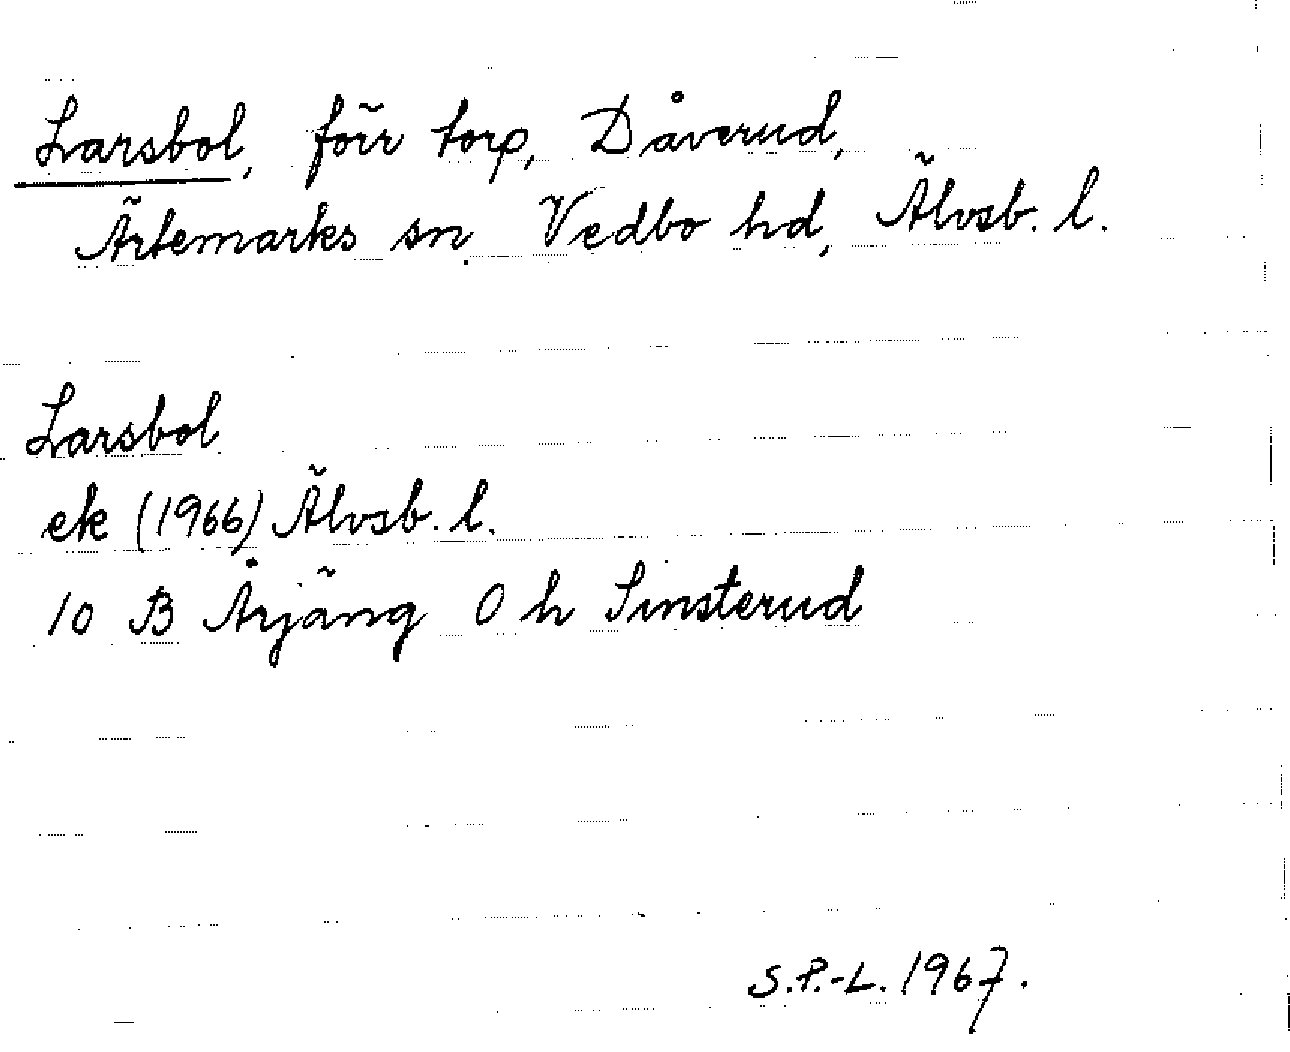 Larsbol, förr torp, Dåverud,
Ärtemarks sn. Vedbo hd, Älvsb. l.
Larsbol
ek (1966) Älvsb. l.
10 B Årjäng 0 h Sinsterud
S.P.-L. 1967.